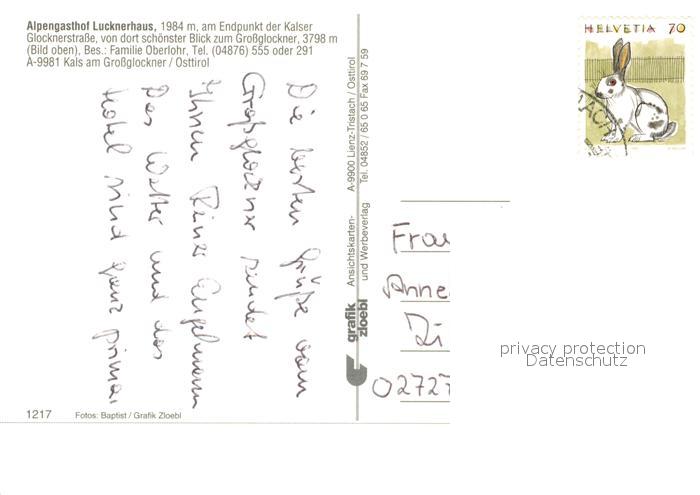 Alpengasthof Lucknerhaus, 1984 m, am Endpunkt der Kalser
Glocknerstraße, von dort schönster Blick zum Großglockner, 3798 m
(Bild oben), Bes.: Familie Oberlohr, Tel. (04876) 555 oder 291
A-9981 Kals am Großglockner / Osttirol
Die besten Grüße vom
Großglockner sendet
Ihnen Rinz Engelmann
Das Wetter und das
Hotel sind ganz prima.
Ansichtskarten- A-9900 Lienz-Tristach / Osttirol
und Werbeverlag Tel. 04852 / 65 0 65 Fax 69 7 59
grafik
zloebl
HELVETIA 70
Frau
Anne
Zi
02727
privacy protection
Datenschutz
1217 Fotos: Baptist / Grafik Zloebl